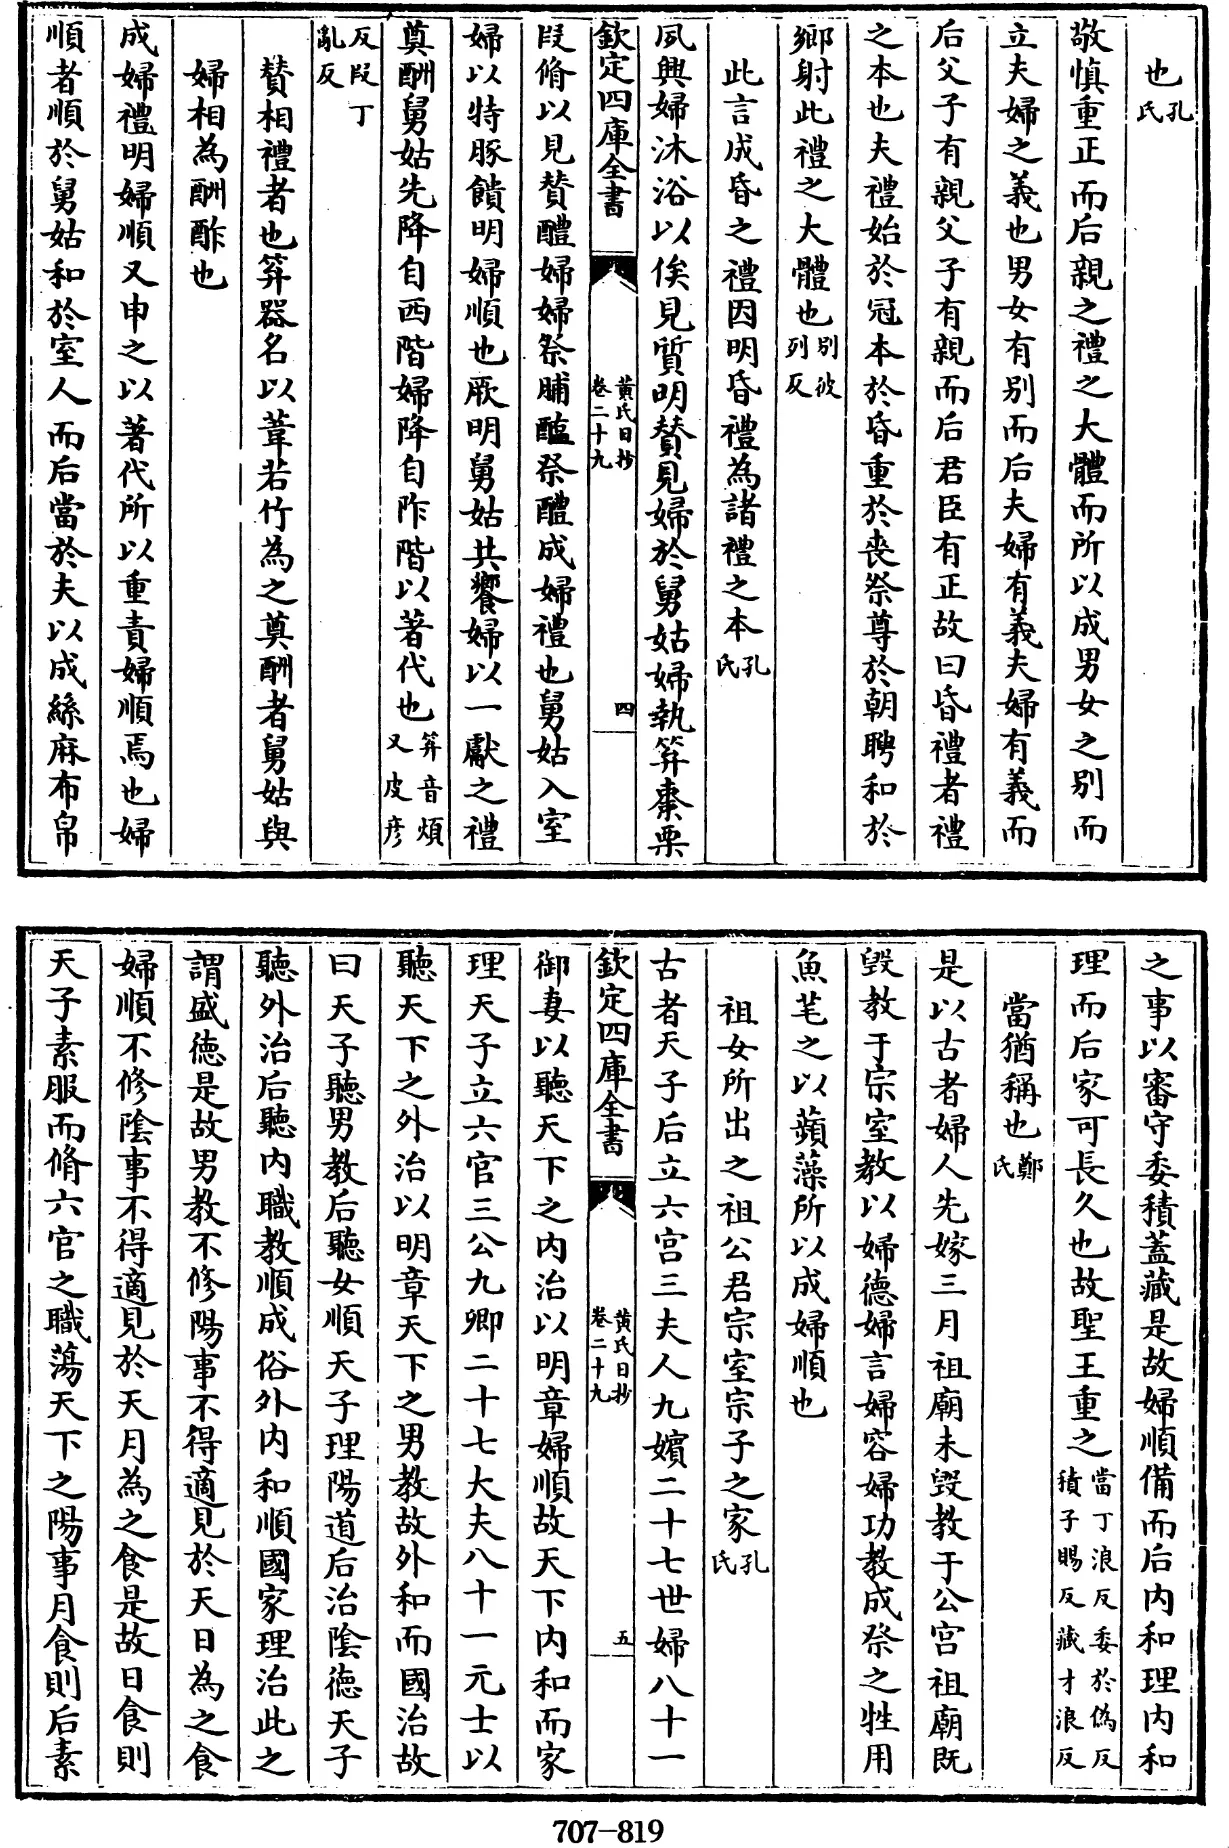 也孔氏
敬慎重正而后親之禮之大體而所以成男女之别而
立夫婦之義也男女有别而后夫婦有義夫婦有義而
后父子有親父子有親而后君臣有正故曰昏禮者禮
之本也夫禮始於冠本於昏重於喪祭尊於朝聘和於
鄉射此禮之大體也别彼列反
此言成昏之禮因明昏禮為諸禮之本孔氏
夙興婦沐浴以俟見質明贊見婦於舅姑婦執笲棗栗
欽定四庫全書 黄氏日抄 卷二十九 四
段脩以見贊醴婦婦祭脯醢祭醴成婦禮也舅姑入室
婦以特豚饋明婦順也厥明舅姑共饗婦以一獻之禮
奠酬舅姑先降自西階婦降自阼階以著代也笲音煩又皮彦
反段丁亂反
贊相禮者也笲器名以葦若竹為之奠酬者舅姑與
婦相為酬酢也
成婦禮明婦順又申之以著代所以重責婦順焉也婦
順者順於舅姑和於室人而后當於夫以成絲麻布帛
之事以審守委積蓋藏是故婦順備而后内和理内和
理而后家可長久也故聖王重之當丁浪反委於偽反積子賜反藏才浪反
當猶稱也鄭氏
是以古者婦人先嫁三月祖廟未毁教于公宫祖廟既
毁教于宗室教以婦德婦言婦容婦功教成祭之牲用
魚芼之以蘋藻所以成婦順也
祖女所出之祖公君宗室宗子之家孔氏
古者天子后立六宫三夫人九嬪二十七世婦八十一
欽定四庫全書 黄氏日抄 卷二十九 五
御妻以聽天下之内治以明章婦順故天下内和而家
理天子立六官三公九卿二十七大夫八十一元士以
聽天下之外治以明章天下之男教故外和而國治故
曰天子聽男教后聽女順天子理陽道后治陰德天子
聽外治后聽内職教順成俗外内和順國家理治此之
謂盛德是故男教不修陽事不得適見於天日為之食
婦順不修陰事不得適見於天月為之食是故日食則
天子素服而脩六官之職蕩天下之陽事月食則后素
707-819